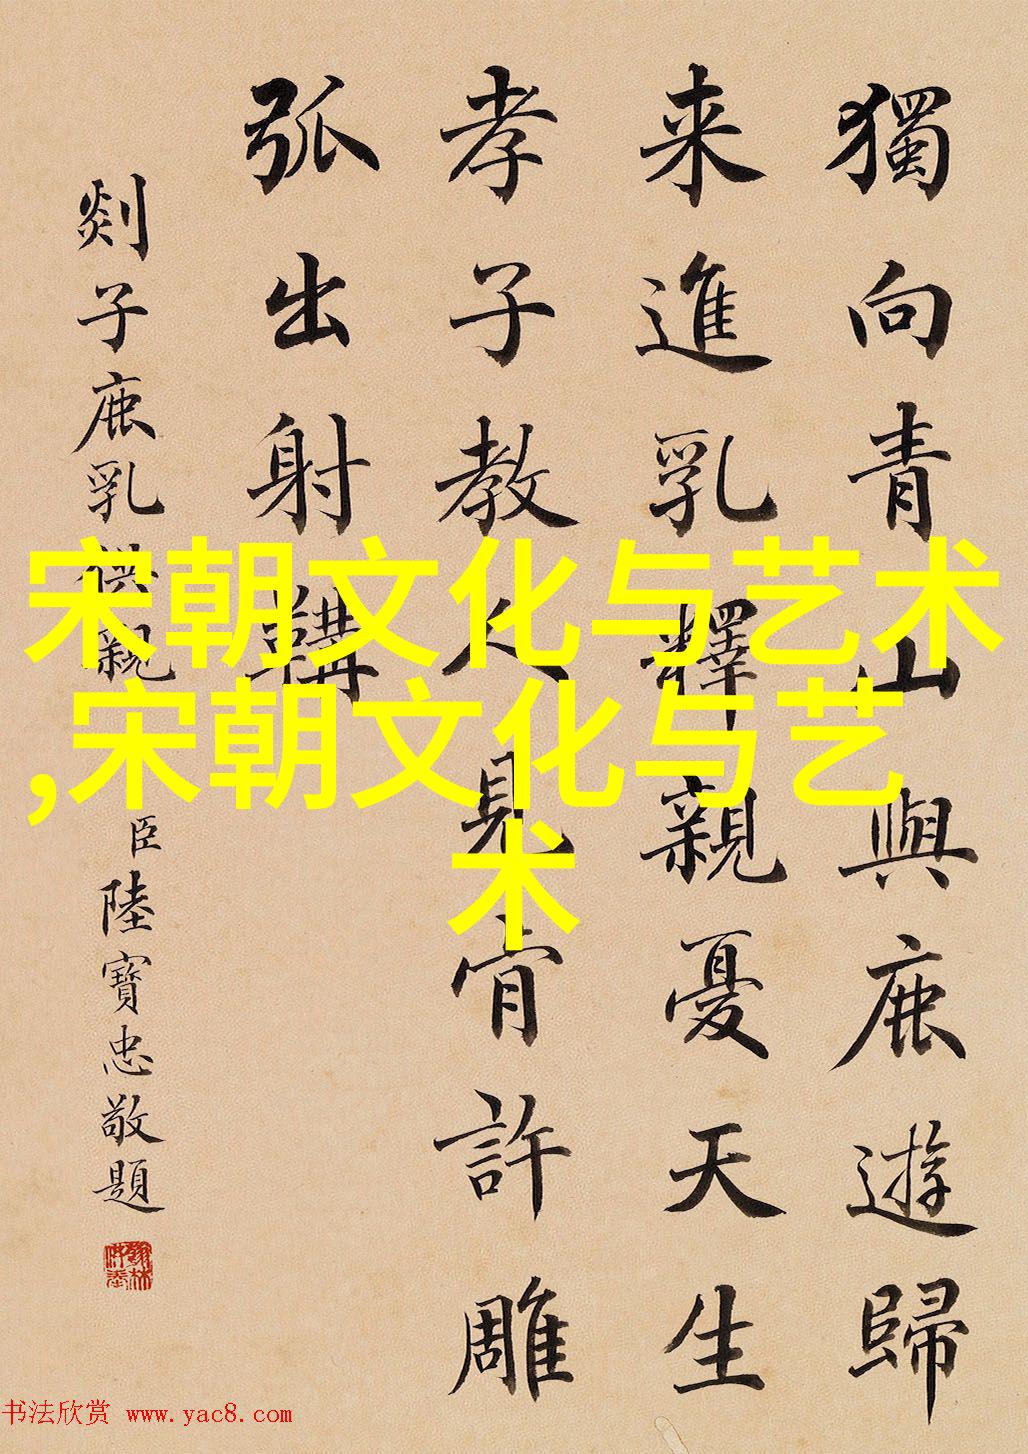 獨向青山與鹿遊歸
来進乳釋親憂天生
孝子教人見肯許雕
弧出射韝
剡子鹿乳供親
臣陸寶忠敬題
宋朝文化与艺术
,宋朝文化与艺
术
书法欣赏 www.yac8.com